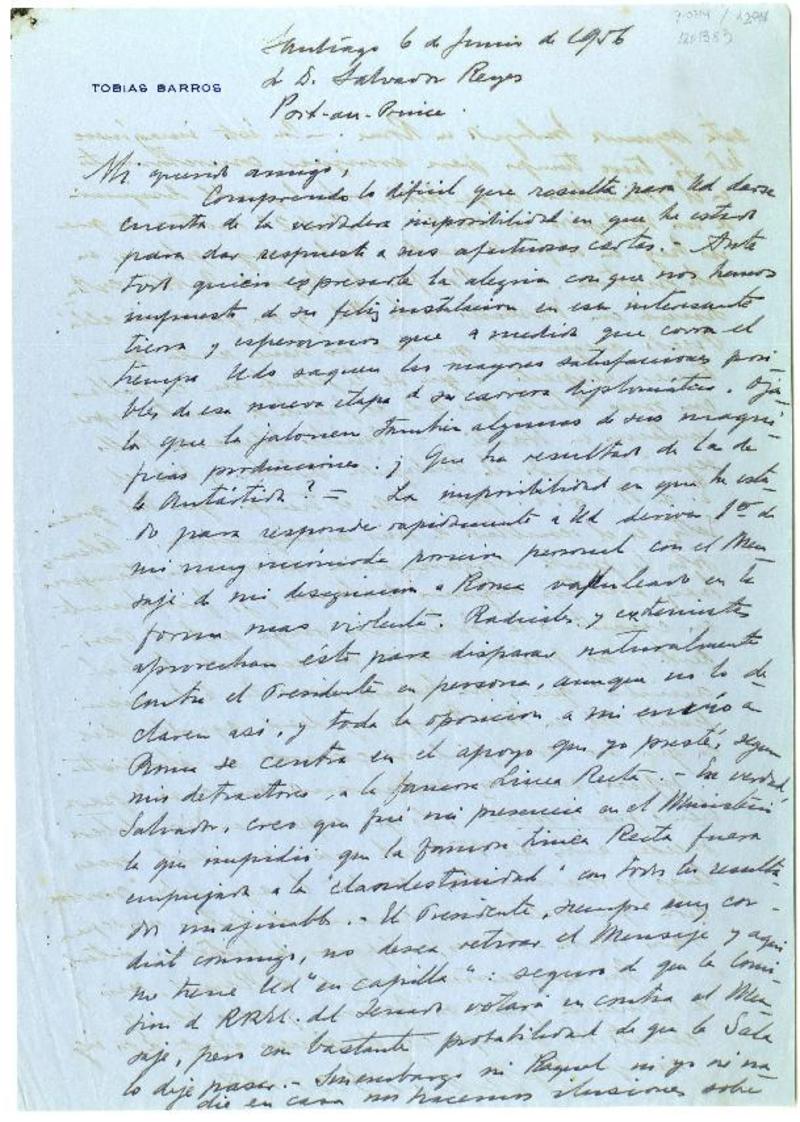 Santiago 6 de Junio de 1956
TOBIAS BARROS
A D. Salvador Reyes
Port-au-Prince.
Mi querido amigo,
Comprendo lo dificil que resulta para Ud darse
cuenta de la verdadera imposibilidad en que he estado
para dar respuesta a sus afectuosas cartas.- Ante
todo quiero expresarle la alegria con que nos hemos
impuesto de su feliz instalacion en esa interesante
tierra y esperamos que a medida que corra el
tiempo Uds saquen las mayores satisfacciones posi-
bles de esa nueva etapa de su carrera diplomática. Oja-
la que la jalonen tambien algunas de sus magní-
ficas producciones. ¿Que ha resultado de la de
la Antártida? = La imposibilidad en que he esta-
do para responder rapidamente a Ud deriva 1º de
mi muy incómoda posicion personal con el Men-
saje de mi designacion a Roma vapuleado en la
forma mas violenta. Radicales y extenientes
aprovechan ésto para disparar naturalmente
contra el Presidente en persona, aunque no lo de-
claren asi, y toda la oposicion a mi envío a
Roma se centra en el apoyo que yo presté, segun
mis detractores, a la famosa Linea Recta.- En verdad,
Salvador, creo que fué mi presencia en el Ministerio
la que impidió que la famosa Linea Recta fuera
empujada a la "clandestinidad" con todos los resulta-
dos imaginables.- El Presidente, siempre muy cor-
dial conmigo, no desea retirar el Mensaje y aqui
me tiene Ud "en capilla": seguro de que la Comi-
sion d RREE. del Senado votará en contra el Men-
saje, pero con bastante probabilidad de que la Sala
lo deje pasar.- Sinembargo ni Raquel ni yo ni na-
die en casa nos hacemos ilusiones sobre